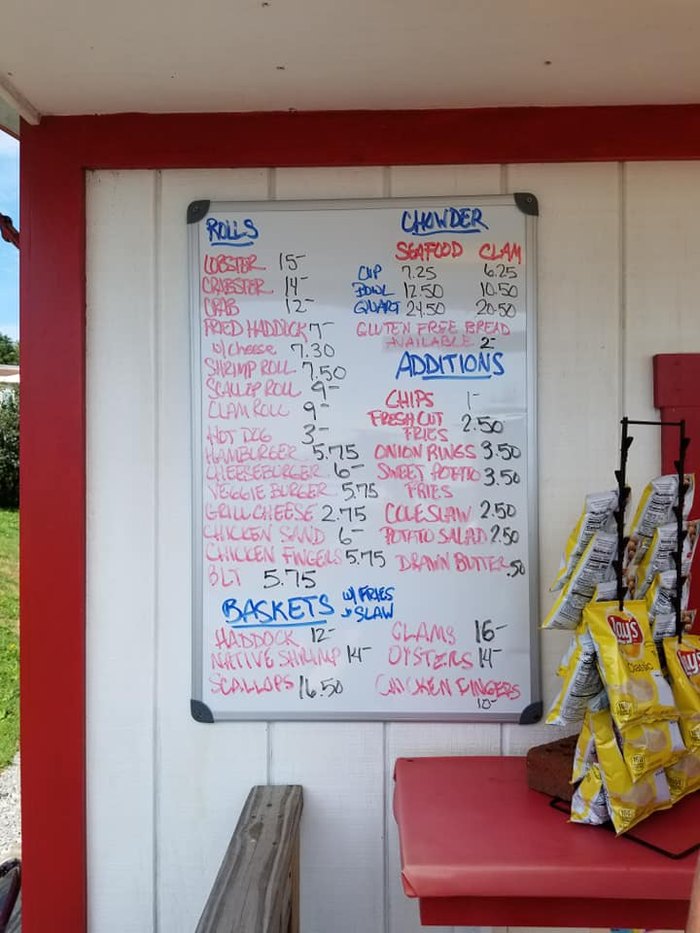 ROLLS
LOBSTER 15-
CRABSTER 14-
CRAB 12-
FRIED HADDOCK 7-
w/ cheese 7.30
SHRIMP ROLL 7.50
SCALLOP ROLL 9-
CLAM ROLL 9-
HOT DOG 3-
HAMBURGER 5.75
CHEESEBURGER 6-
VEGGIE BURGER 5.75
GRILL CHEESE 2.75
CHICKEN SAND 6-
CHICKEN FINGERS 5.75
BLT 5.75
CHOWDER
SEAFOOD CLAM
CUP 7.25 6.25
BOWL 12.50 10.50
QUART 24.50 20.50
GLUTEN FREE BREAD
AVAILABLE 2-
ADDITIONS
CHIPS 1-
FRESH CUT
FRIES 2.50
ONION RINGS 3.50
SWEET POTATO 3.50
FRIES
COLESLAW 2.50
POTATO SALAD 2.50
DRAWN BUTTER .50
BASKETS w/ FRIES
+ SLAW
HADDOCK 12-
NATIVE SHRIMP 14-
SCALLOPS 16.50
CLAMS 16-
OYSTERS 14-
CHICKEN FINGERS
10-
Lay's
Classic
Lay's